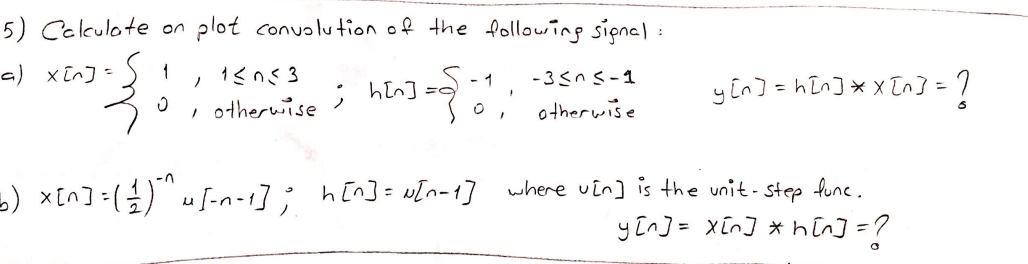 5) Calculate on plot convolution of the following signal :
a) x[n] = { 1 , 1≤n≤3 ; h[n] = { -1 , -3≤n≤-1 y[n] = h[n] * x[n] = ?
0 , otherwise 0 , otherwise
b) x[n] = (1/2)^-n u[-n-1] ; h[n] = u[n-1] where u[n] is the unit-step func.
y[n] = x[n] * h[n] = ?